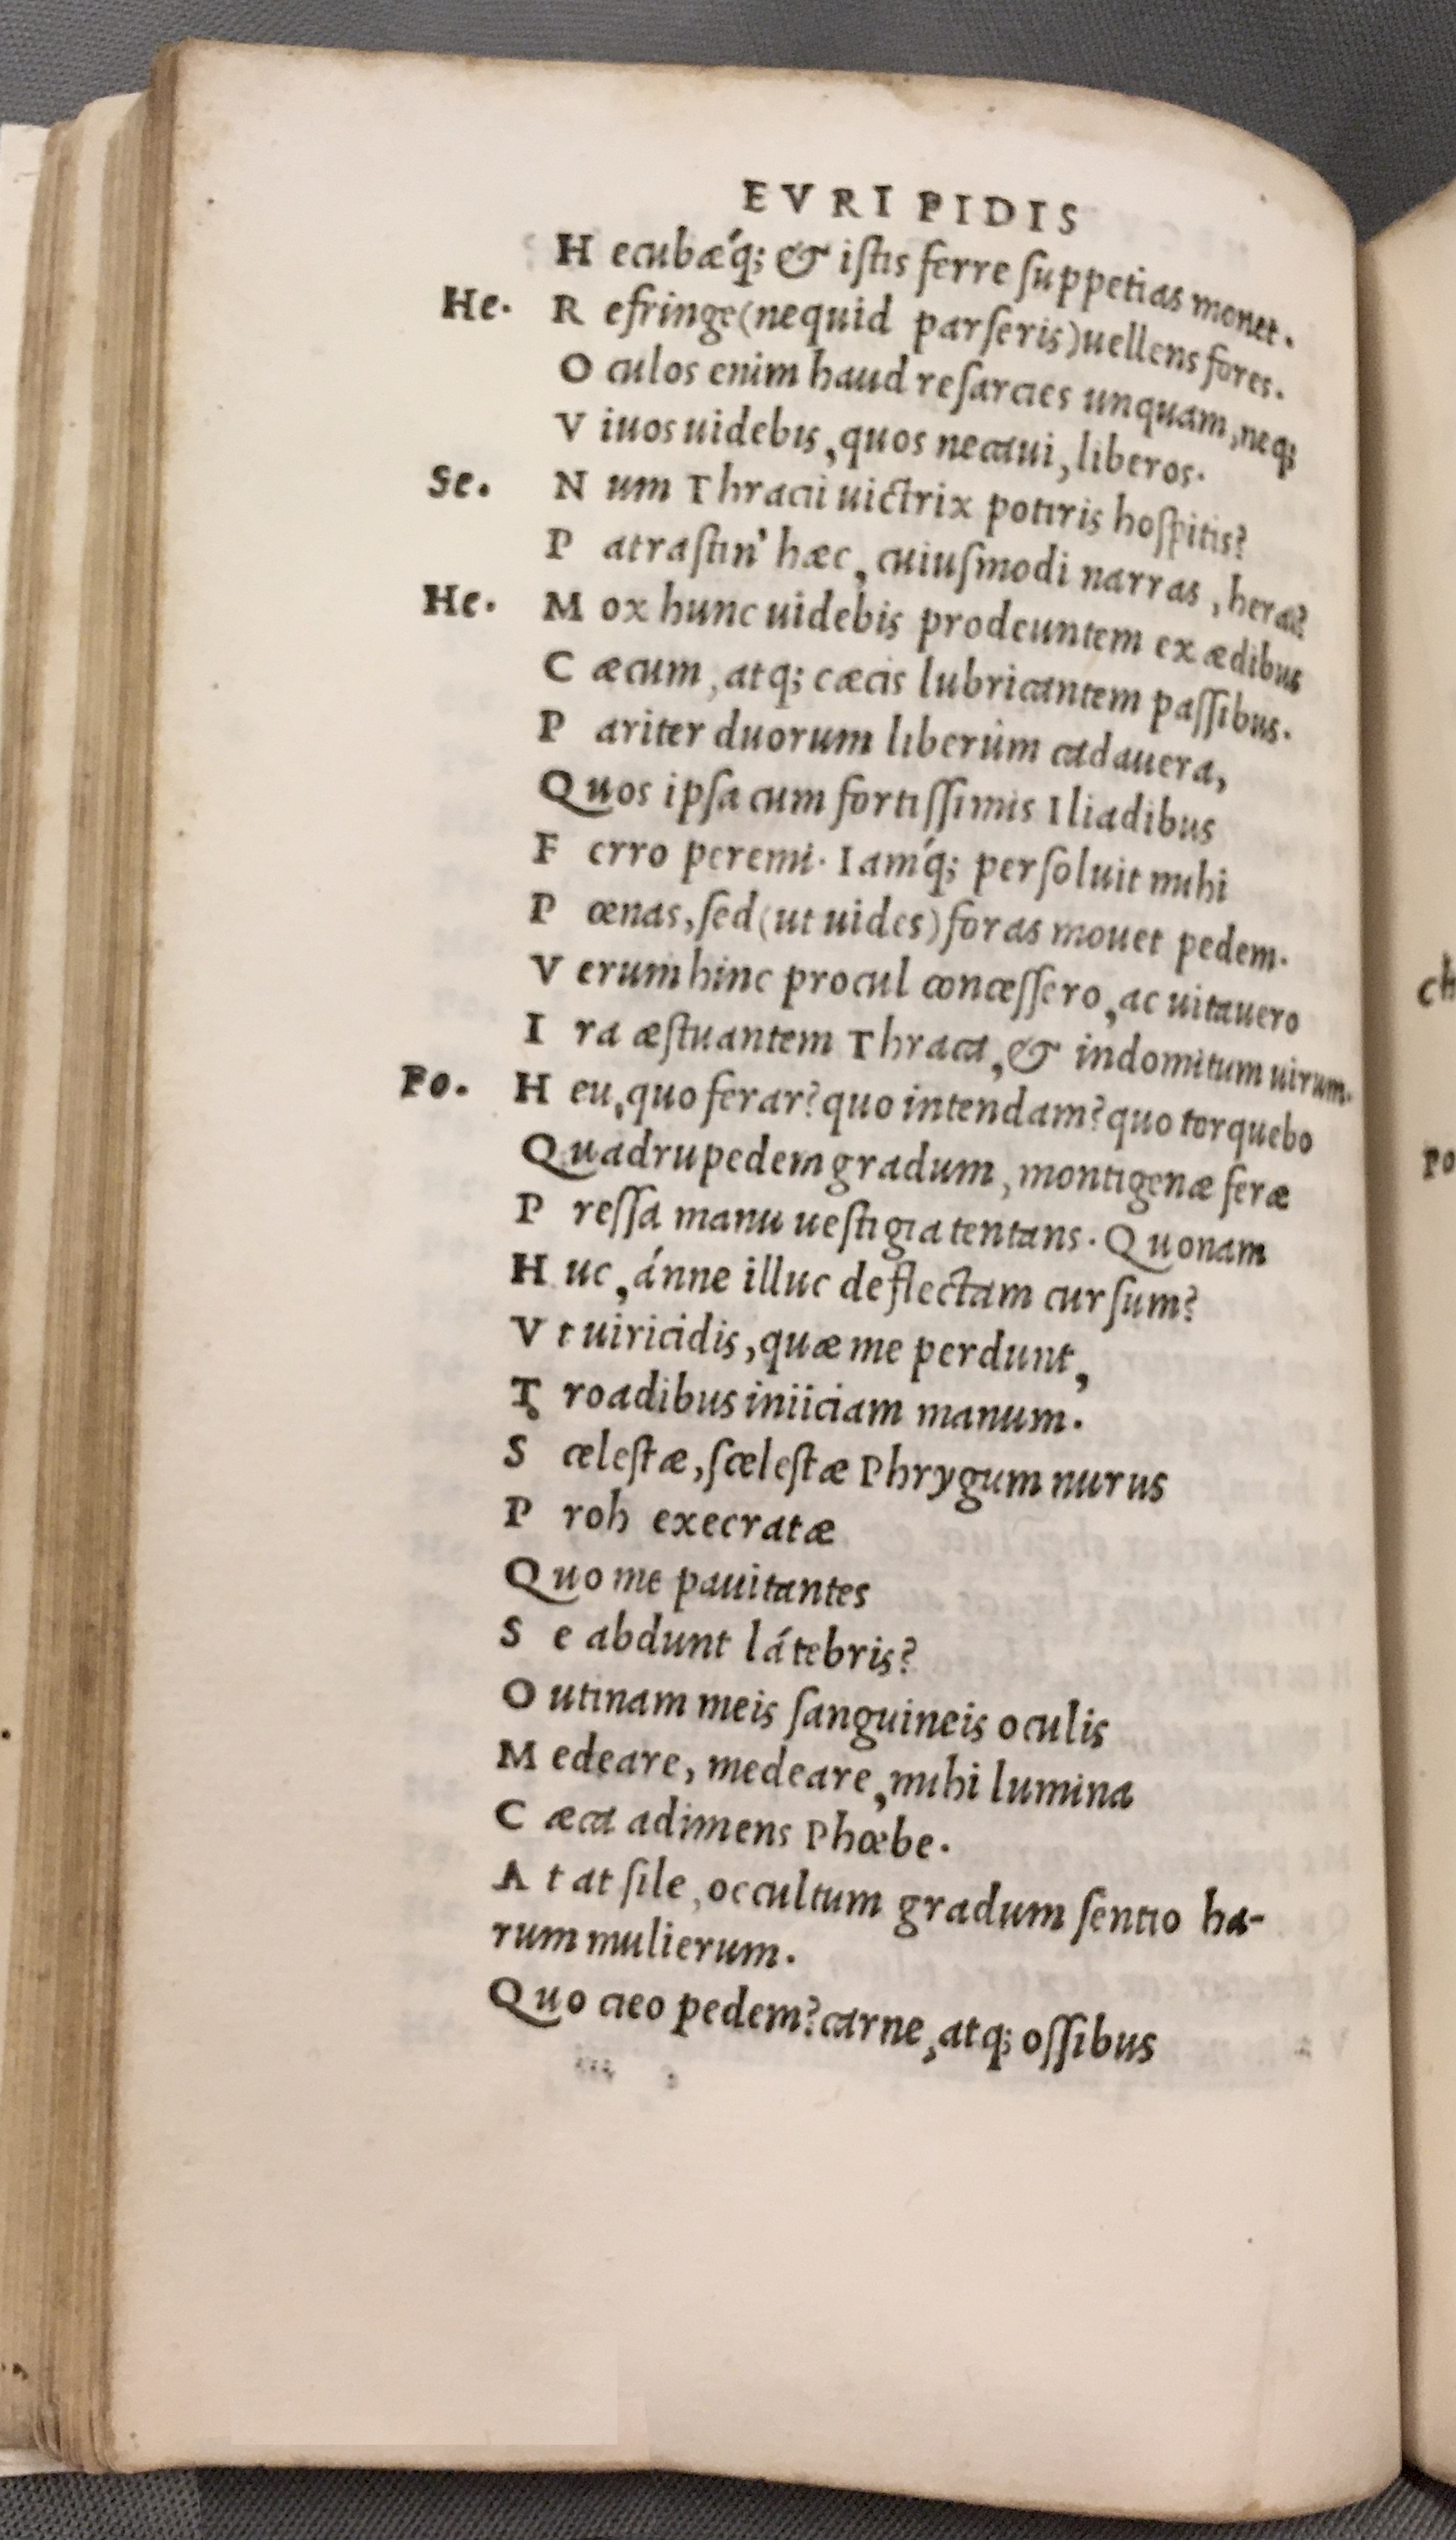 EVRIPIDIS
Hecubæ'q; & iſtis ferre ſuppetias monet.
He. Refringe (nequid parſeris) uellens fores.
Oculos enim haud reſarcies unquam, neq;
Viuos uidebis, quos necaui, liberos.
Se. Num Thracii uictrix potiris hoſpitis?
Patraſtin' hæc, cuiuſmodi narras, hera?
He. Mox hunc uidebis prodeuntem ex ædibus
Cæcum, atq; cæcis lubricantem paſſibus.
Pariter duorum liberûm cadauera,
Quos ipſa cum fortiſſimis Iliadibus
Ferro peremi. Iam'q; perſoluit mihi
Pœnas, ſed (ut uides) foras mouet pedem.
Verum hinc procul conceſſero, ac uitauero
Ira æſtuantem Thraca, & indomitum uirum.
Po. Heu, quo ferar? quo intendam? quo torquebo
Quadrupedem gradum, montigenæ feræ
Preſſá manu ueſtigia tentans. Quonam
Huc, ánne illuc deflectam curſum?
Vt uiricidis, quæ me perdunt,
Troadibus iniiciam manum.
Sceleſtæ, ſceleſtæ Phrygum nurus
Proh execratæ
Quo me pauitantes
Se abdunt látebris?
O utinam meis ſanguineis oculis
Medeare, medeare, mihi lumina
Cæca adimens Phœbe.
At at ſile, occultum gradum ſentio ha-
rum mulierum.
Quo cieo pedem? carne, atq; oſſibus
Ch
Po